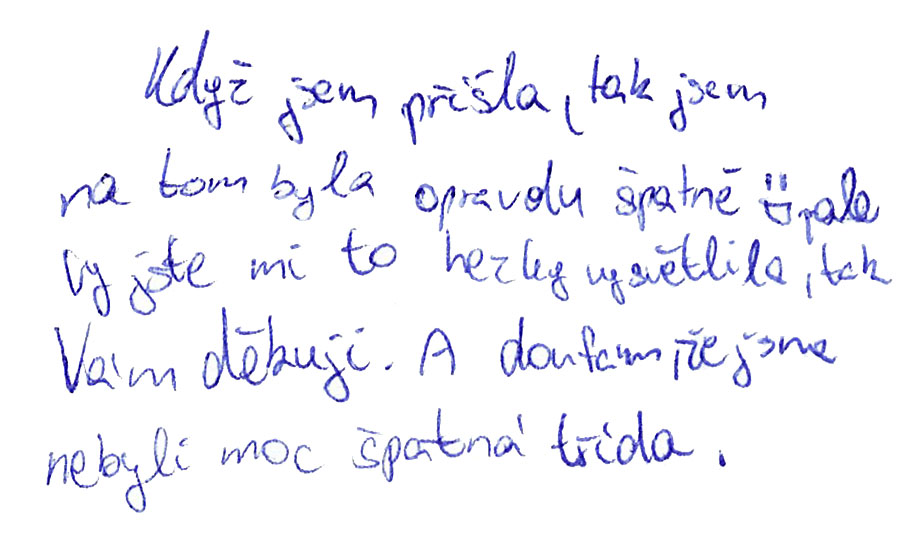 Když jsem přišla, tak jsem
na tom byla opravdu špatně :D, ale
Vy jste mi to hezky vysvětlila, tak
Vám děkuji. A doufám, že jsme
nebyli moc špatná třída.